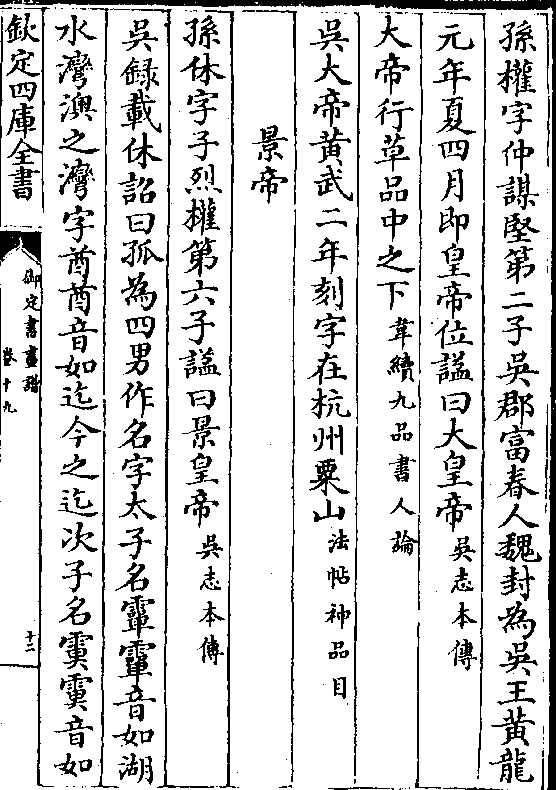 孫權字仲謀堅第二子吳郡富春人魏封為吳王黃龍
元年夏四月即皇帝位諡曰大皇帝吳志本傳
大帝行草品中之下韋續九品書人論
吳大帝黃武二年刻字在杭州粟山法帖神品目
景帝
孫休字子烈權第六子諡曰景皇帝吳志本傳
吳録載休詔曰孤為四男作名字太子名𩅦𩅦音如湖
水灣澳之灣字莔莔音如迄今之迄次子名𩃙𩃙音如
欽定四庫全書
御定書畫譜
卷十九
十二